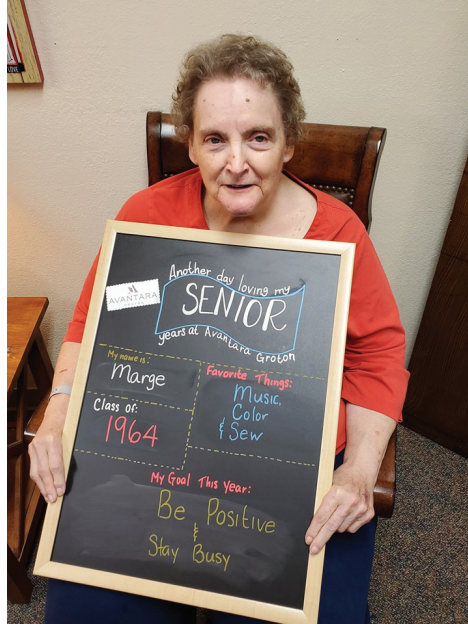 LOVE
Another day loving my
AVANTARA
SENIOR
years at Avantara Groton
My name is:
Marge
Class of:
1964
Favorite Things:
Music,
Color
& Sew
My Goal This Year:
Be Positive
&
Stay Busy